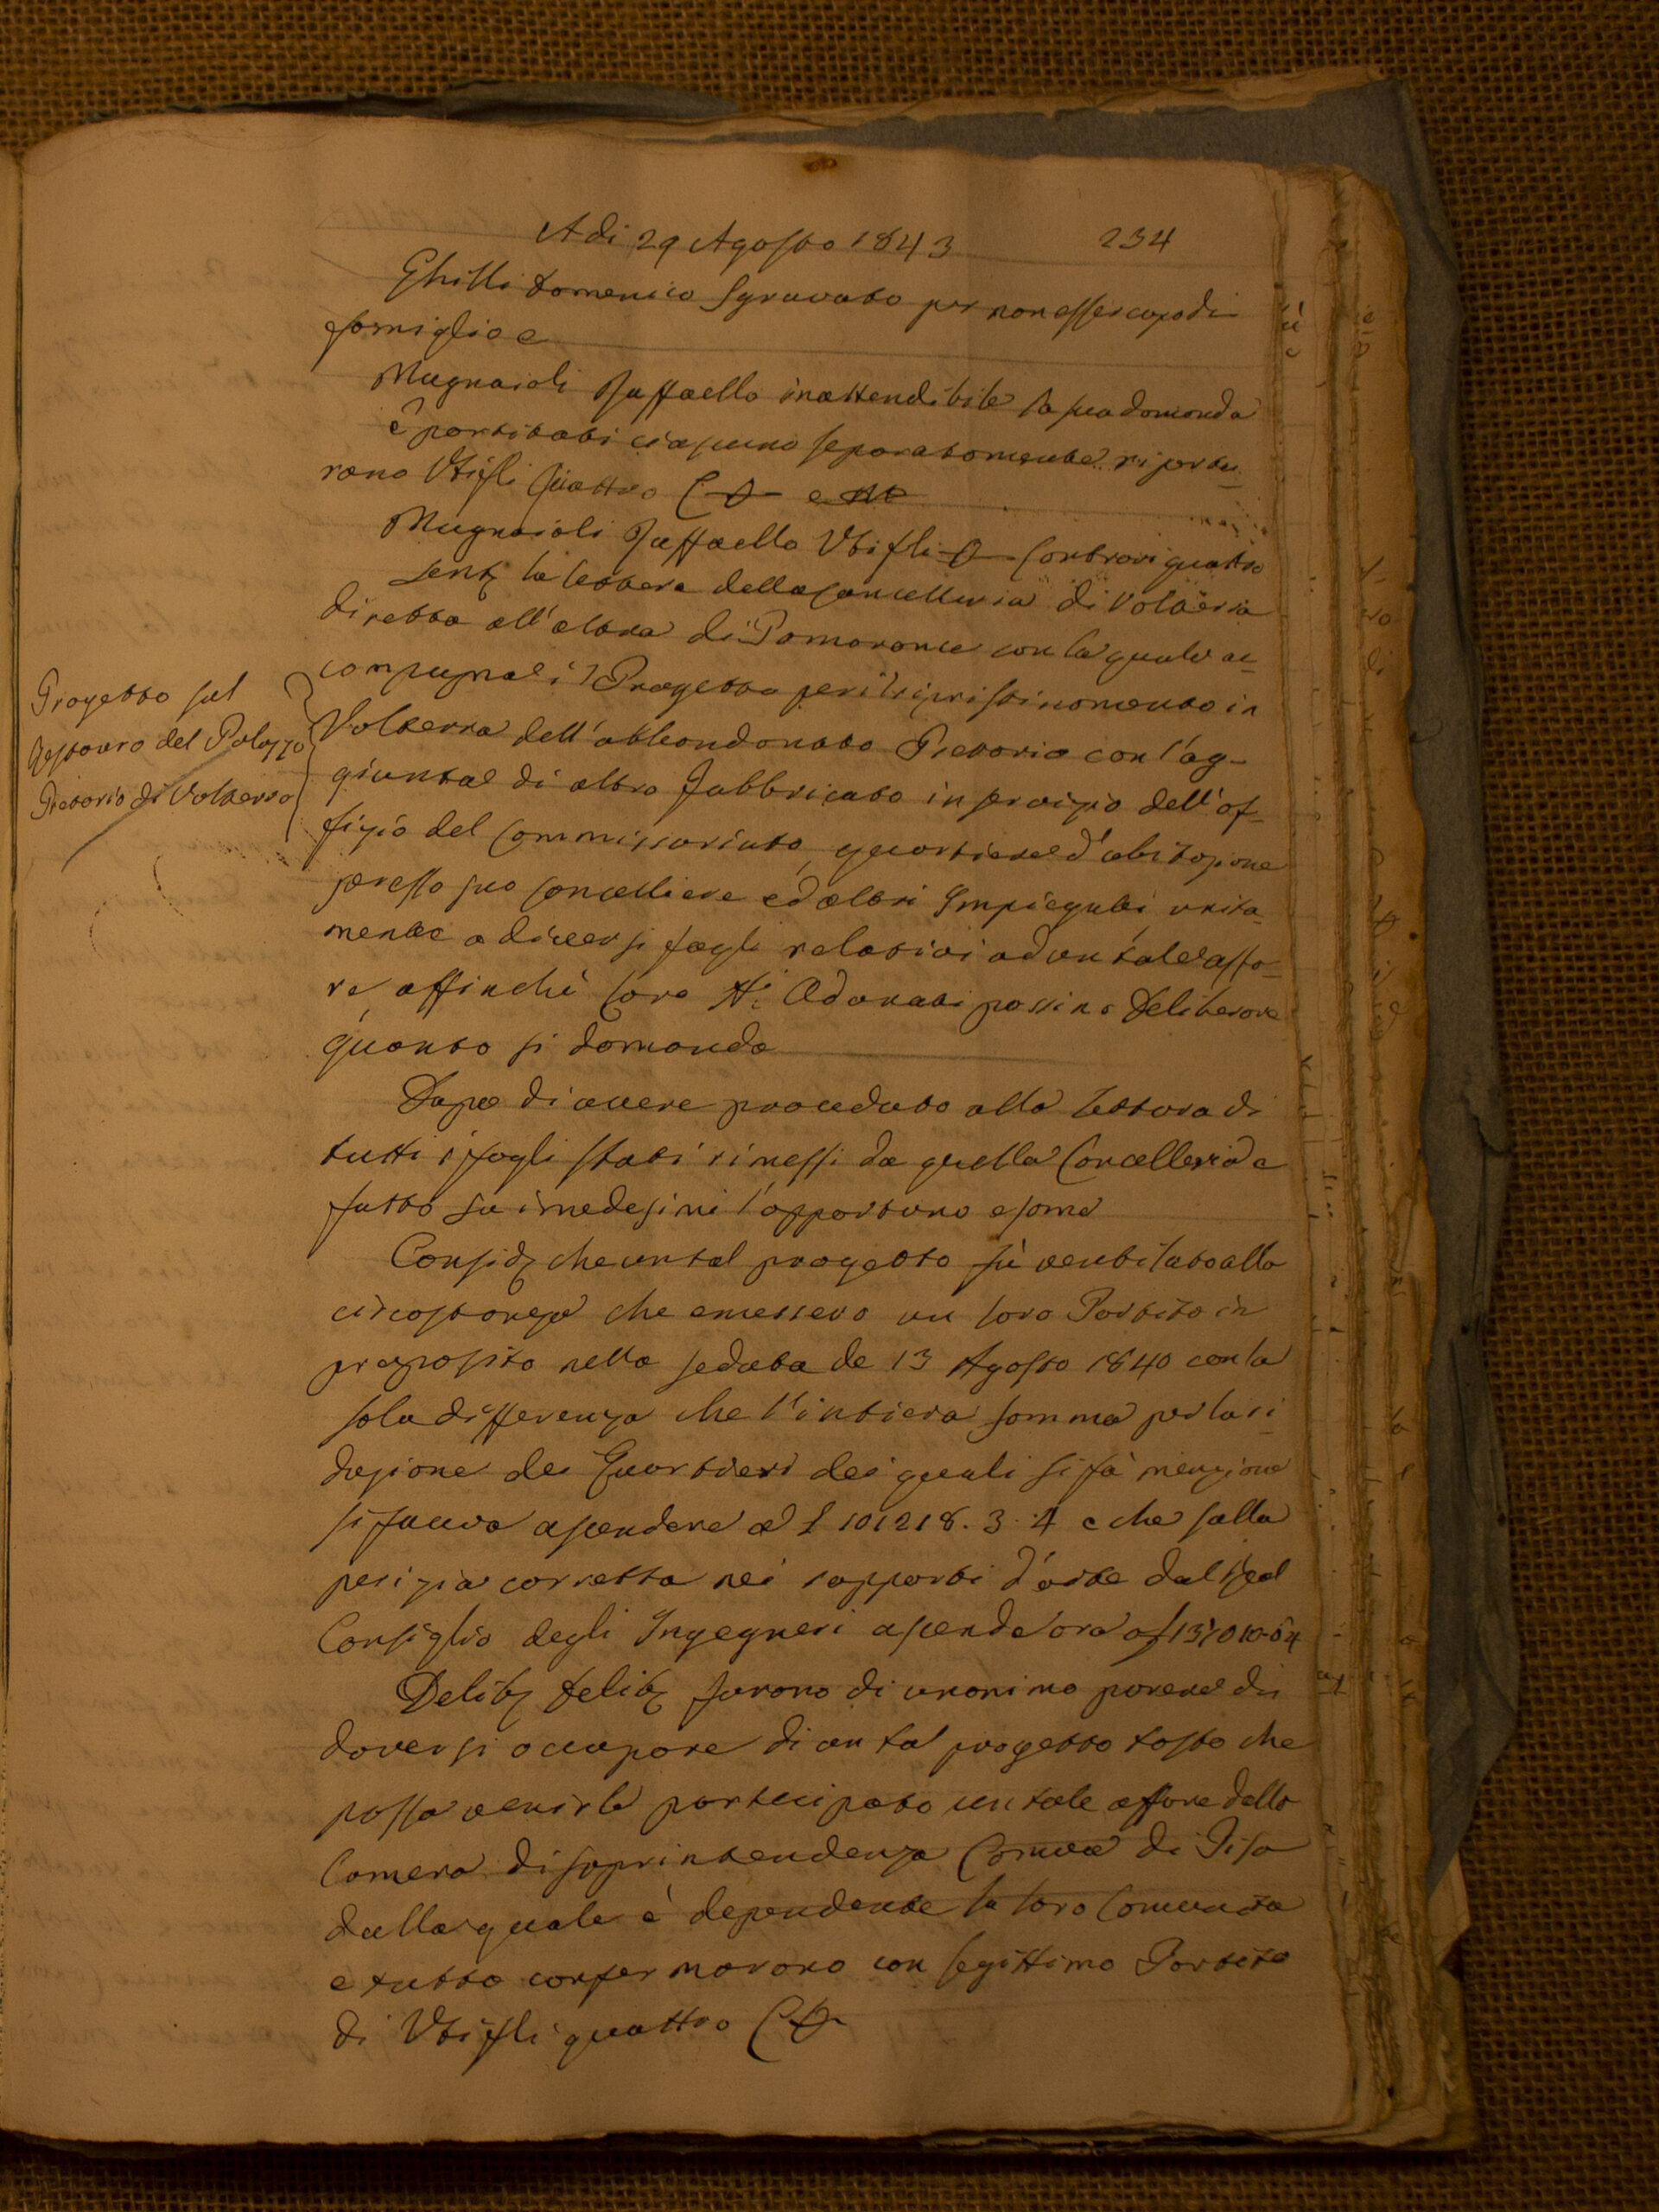 Adi 29 Agosto 1843 234
Ghilli Domenico sgravato per non esser capo di
famiglia e
Mugnaioli Raffaello inattendibile la sua domanda
e partitati ciascuno separatamente riportu
rono Vti fli quattro
Mugnaioli Raffaello Vti fli Contrari quattro
Sent la lettera della Cancelleria di Volterra
diretta all'altra di Pomarance con la quale ac=
compagna il Progetto per il ripristinamento in
Volterra dell'abbandonato Pretorio con l'ag=
giunta di altro Fabbricato in servizio dell'of=
fizio del Commissariato, quartiere d'abitazione
Progetto sul
Restauro del Palazzo
Pretorio di Volterra
presso suo Cancelliere ed altri Impiegati unita
mente a diversi fogli relativi ad un tale affa=
re, affinchè loro Adunati possino Deliberare
quanto si domanda
Dopo di avere proceduto alla lettura di
tutti i fogli stati rimessi da quella Cancelleria e
fatto su i medesimi l'opportuno esame
Consid che un tal progetto fù ventilato alla
circostanza che emessero un loro Partito in
proposito nella seduta de 13 Agosto 1840 con la
sola differenza che l'intiera somma per la ri
duzione dei Quartieri dei quali si fà menzione
si faceva ascendere a £ 101218. 3. 4 e che sulla
perizia corretta nei rapporti d'arte dal Real
Consiglio degli Ingegneri ascende ora a
Delib Delib furono di unanimo parere di
doversi occupare di un tal progetto tosto che
possa venirle partecipato un tale affare dalla
Camera di soprintendenza Comva di Pisa
dalla quale è dependente la loro Comunità
e tutto confermarono con legittimo Partito
di Vti fli quattro